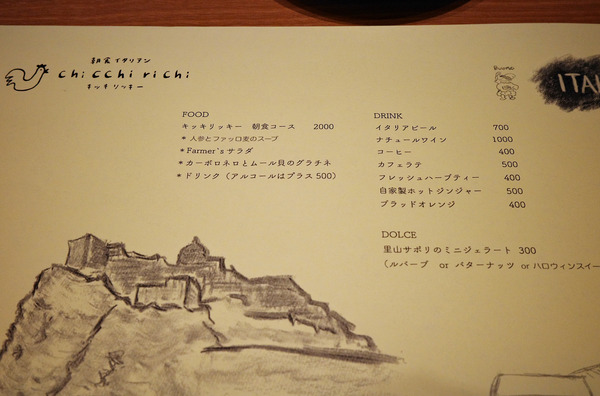 朝食イタリアン
chicchi richi
キッキリッキー
Buono
ITA
FOOD
キッキリッキー　朝食コース　2000
* 人参とファッロ麦のスープ
* Farmer's サラダ
* カーボロネロとムール貝のグラチネ
* ドリンク（アルコールはプラス500）
DRINK
イタリアビール　700
ナチュールワイン　1000
コーヒー　400
カフェラテ　500
フレッシュハーブティー　400
自家製ホットジンジャー　500
ブラッドオレンジ　400
DOLCE
里山サポリのミニジェラート　300
（ルバーブ　or　バターナッツ　or ハロウィンスイー